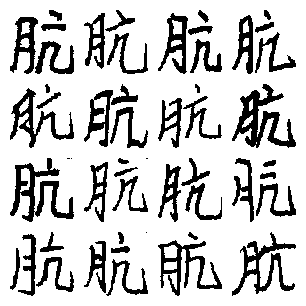 肮肮肮肮
肮肮肮肮
肮肮肮肮
肮肮肮肮